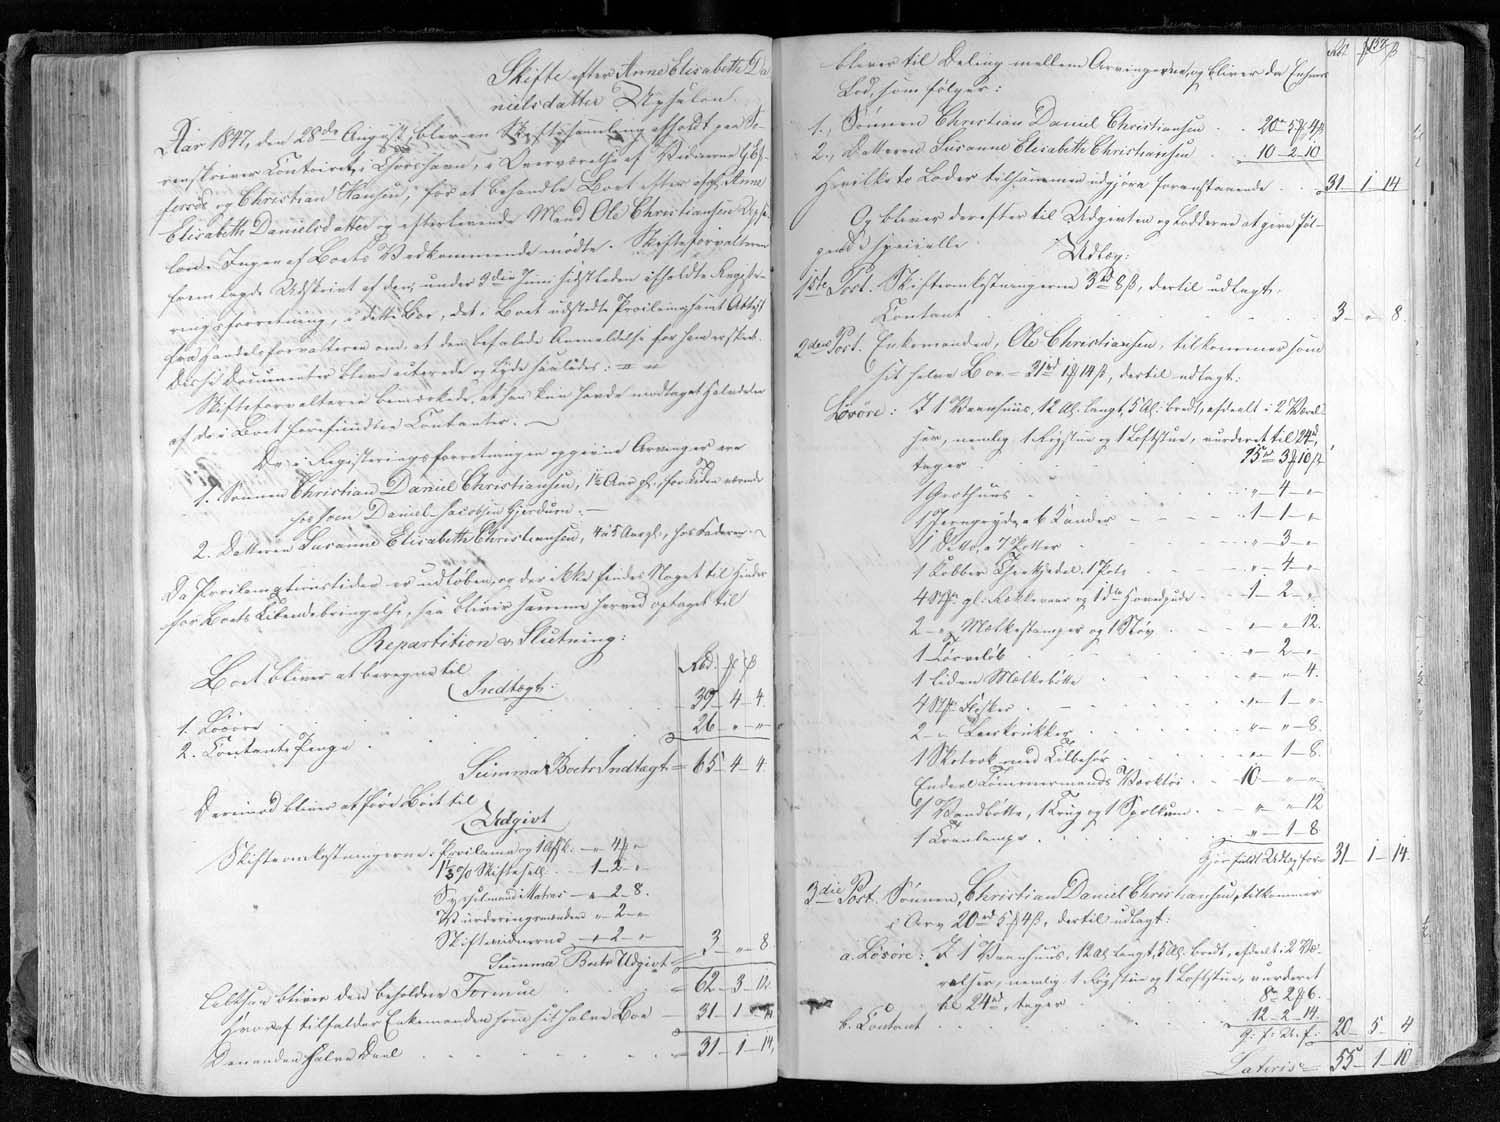 Skifte efter Anne Elisabeth Da
nielsdatter Upsalon.
Aar 1847, den 28de August blev en Skiftesamling afholdt paa So-
renskriver Contoiret i Thorshavn, i Overværelse af Vidnerne
og Christian Hansen, for at behandle Boet efter afg. Anne
Elisabeth Danielsdatter og efterlevende Mand Ole Christiansen Upsa-
lon. Ingen af Boets Vedkommende mødte. Skifteforvalteren
fremlagde Udskrivt af den, under 9de Juni sidstleden afholdte Registe-
ringsforretning, i dette Boe, det i Boet udstedte Proclama samt Attest
fra Handelsforvalteren om, at den befalede Anmeldelse for ham er skeed.
Disse Documenter blive acterede og lyde saaledes:
Skifteforvalteren bemærkede, at han kun havde modtaget Halvdelen
af de i Boet forefundne Contanter.
De i Registeringsforretningen opgivne Arvinger ere
1. Sønnen Christian Daniel Christiansen, 1½ Aar gl., for Tiden værende
hos Daniel Jacobsen Gjerdum.
2. Datteren Susanne Elisabeth Christiansen, 4 à 5 Aar gl., hos Faderen
Da Proclamationstiden er udløben, og der ikke findes Noget til Hinder
for Boets Tilendebringelse, saa bliver samme herved optaget til
Repartition & Slutning:
Boet bliver at beregne til
Rbd: ₰ ß
Indtægt:
1. Løsøre . . . 39 - 4 - 4.
2. Contante Penge . . . 26 „ „
Summa Boets Indtægt = 65 - 4 - 4.
Derimod bliver at føre Boet til
Udgivt
Skifteomkostningerne: Proclama og 1 Afsk. - „ 4 ₰ „
1⅓ % Skiftesall. . . 1 - 2 - „
Sysselmand Matras - „ 2 - 8.
Vurderingsmændene „ - 2 - „
Skiftevidnerne - „ 2 - „
3 - „ 8
Summa Boets Udgivt
Altsaa bliver den beholdne Formue . . . = 62 - 3 - 12.
Hvoraf tilfalder Enkemanden som sit halve Boe - 31 - 1 - 14
Den anden halve Deel . . . = 31 - 1 - 14,
Rbd ₰ ß
157
bliver til Deling mellem Arvingerne, og bliver da Enhvers
Lod, som følger:
1., Sønnen Christian Daniel Christiansen . . 20 rd 5 ₰ 4 ß
2., Datteren Susanne Elisabeth Christiansen . . 10 - 2 - 10
Hvilke to Lodder tilsammen udgjøre foranstaaende . . 31 - 1 - 14
Og bliver derefter til Udgivten og Lodderne at give føl-
gende specielle
Udlæg:
1ste Post. Skifteomkostningerne 3 rd 8 ß, dertil udlagt,
Contant . . . 3 - „ 8.
2den Post. Enkemanden, Ole Christiansen, tilkommer som
sit halve Boe = 31 rd 1 ₰ 14 ß, dertil udlagt:
Løsøre: I 1 Vaanhuus, 12 Al. langt, 5 Al. bredt, afdeelt i 2 Værel-
ser, nemlig 1 Røgstue og 1 Loftstue, vurderet til 24 rd,
tages . . . 15 rd 3 ₰ 10 ß
1 Grothuus . . . „ - 4 - „
1 Jerngryde a 6 Kander . . . 1 - 1 - „
1 Ditto, a 7 Potter . . . „ - 3 - „
1 Kobber Theekjedel, 1 Pots . . . „ - 4 - „
4 Stkr gl: Rækkevaer og 1 do Hovedpude . . 1 - 2 - „
2 - „ Mælkestamper og 1 Støv . . . „ „ 12.
1 Tørveløb . . . „ - 2 - „
1 liden Mælkebøtte . . . „ „ 4.
4 Stkr Flasker . . . „ - 1 - „
2 - „ Leerkrukker . . . „ „ 8.
1 Skotrok med Tilbehør . . . „ 1 - 8.
Endeel Tømmermands Værktøi . . . 10 - „ „
1 Vandbøtte, 1 Krug og 1 Spolkum . . . „ „ 12
1 Tranlampe . . . „ - 1 - 8
Gjør fuldt Udlæg for = 31 - 1 - 14.
3die Post. Sønnen, Christian Daniel Christiansen, tilkommer
i Arv 20 rd 5 ₰ 4 ß, dertil udlagt:
a. Løsøre: I 1 Vaanhuus, 12 Al. langt, 5 Al. bredt, afdeelt i 2 Væ-
relser, nemlig 1 Røgstue og 1 Loftstue, vurderet
til 24 rd, tages . . . 8 rd 2 ₰ 6.
b. Contant . . . 12 - 2 - 14.
G. f. U. f. 20 - 5 - 4
Lateris = 55 - 1 - 10